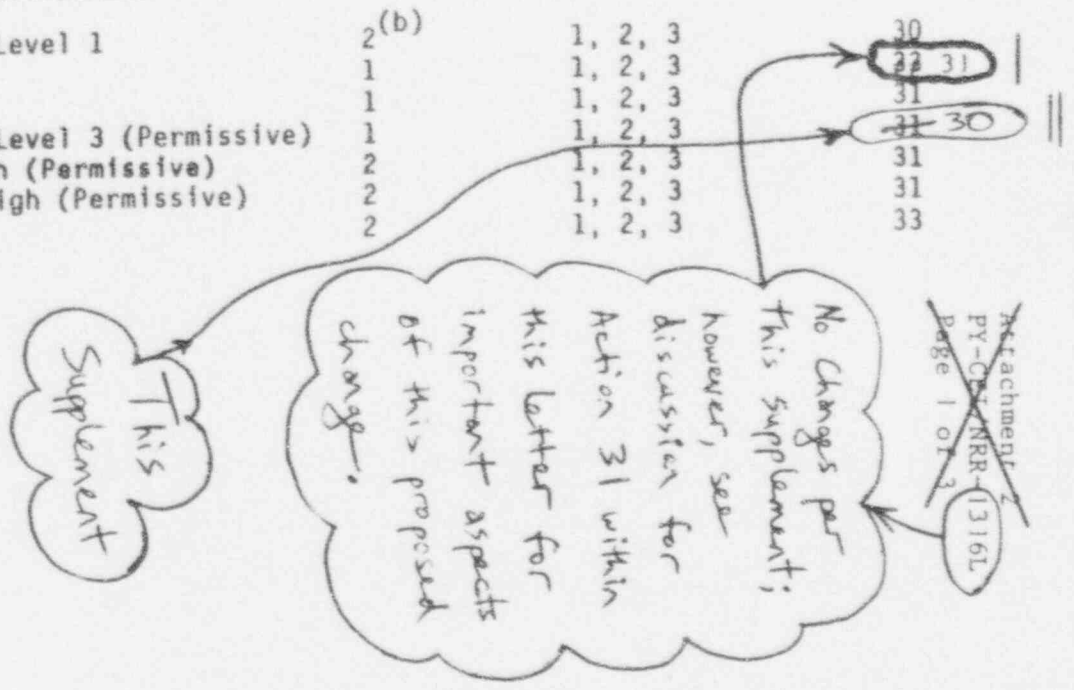 Level 1 2(b) 1, 2, 3 30
1 1, 2, 3 32 31
1 1, 2, 3 31
Level 3 (Permissive) 1 1, 2, 3 31 30
h (Permissive) 2 1, 2, 3 31
igh (Permissive) 2 1, 2, 3 31
2 1, 2, 3 33
This
Supplement
No Change per
this supplement;
however, see
discussion for
Action 31 within
this letter for
important aspects
of this proposed
change.
Attachment 2
PY-CEI/NRR-1316L
Page 1 of 3